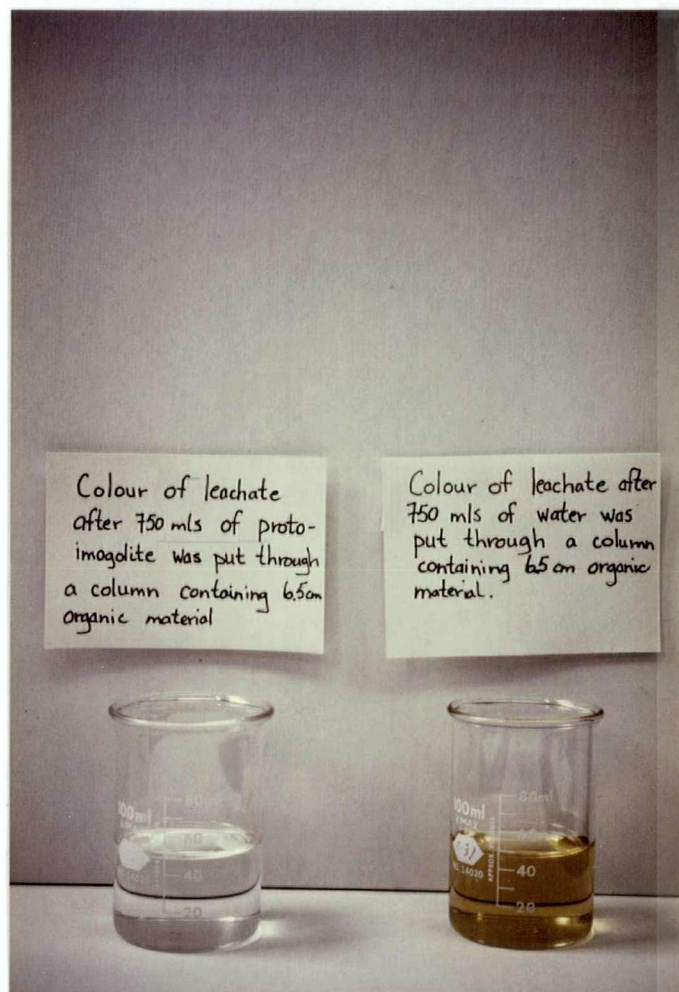 Colour of leachate
after 750 mls of proto-
imogolite was put through
a column containing 6.5cm
organic material
Colour of leachate after
750 mls of water was
put through a column
containing 6.5 cm organic
material.
80
100ml
60
40
20
80ml
100ml
KIMAX
40
20